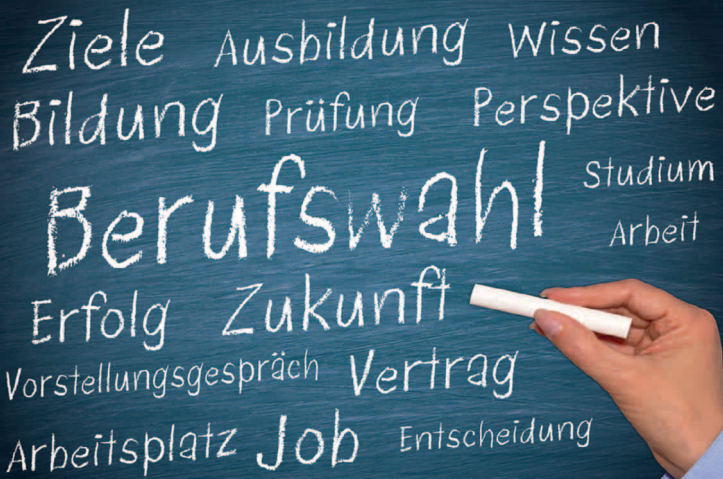 Ziele Ausbildung Wissen
Bildung Prüfung Perspektive
Berufswahl
Studium
Arbeit
Erfolg Zukunft
Vorstellungsgespräch Vertrag
Arbeitsplatz Job Entscheidung